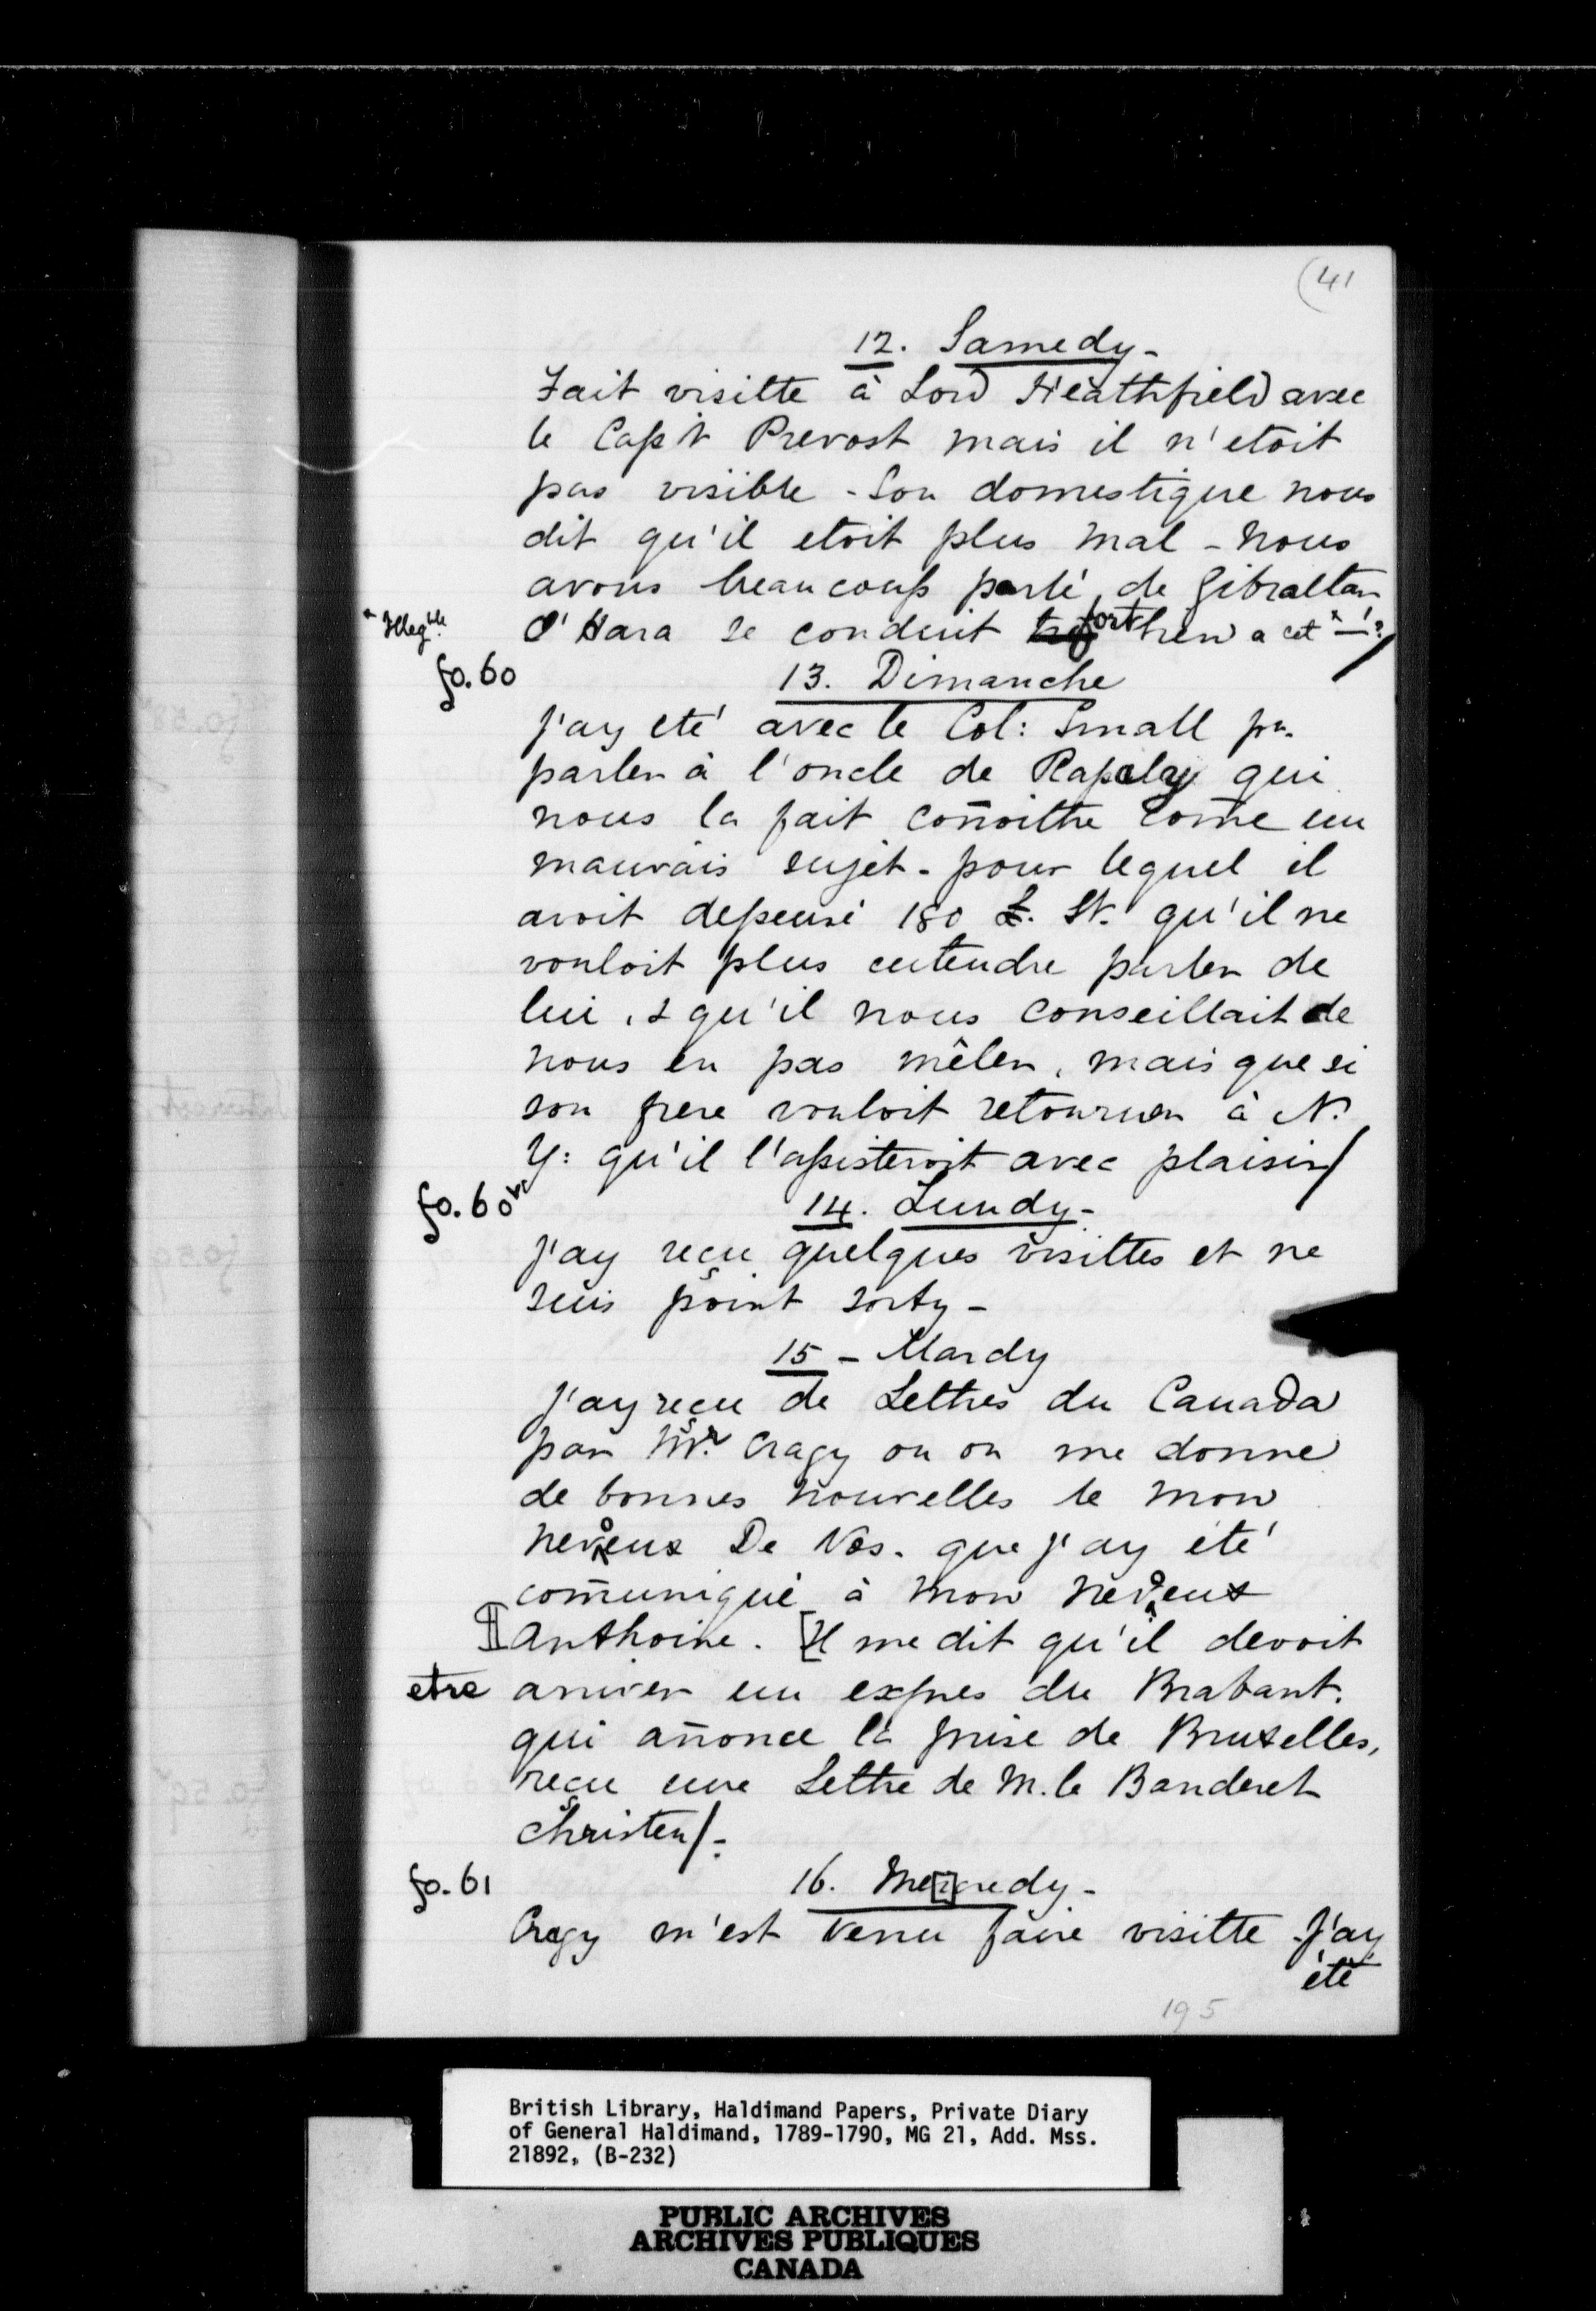 (41
12. Samedy-
Fait visitte à Lord Heathfield avec
le Capt Prevost mais il n'etoit
pas visible - Son domestique nous
dit qu'il etoit plus mal - nous
avons beaucoup parlé de Gibraltar
* Illegble. O'Hara se conduit fort bien a cet *—!?/
fo. 60 13. Dimanche
J'ay eté avec le Col: Small pr.
parler à l'oncle de Rapelye qui
nous la fait coñoitre come un
mauvais sujet - pour lequel il
avoit depensé 180 £. St. qu'il ne
vouloit plus entendre parler de
lui, & qu'il nous conseillait de
nous en pas mêler, mais que si
son frere vouloit retourner à N.
Y: qu'il l'assisteroit avec plaisir/
fo. 60vo 14. Lundy-
J'ay reçu quelques visittes et ne
suis point sorty -
15 - Mardy
J'ay reçu de Lettres du Canada
par Mr. Cragy ou on me donne
de bonnes nouvelles de mon
neveux De Ves. que j'ay été
comuniqué à mon neveux
Anthoine. [Il me dit qu'il devoit
etre arriver un expres du Brabant.
qui añonce la prise de Bruxelles,
reçu une Lettre de M. le Banderet
Christen/-
fo. 61 16. Me[r]credy-
Cragy m'est venu faire visitte - J'ay
été
195
British Library, Haldimand Papers, Private Diary
of General Haldimand, 1789-1790, MG 21, Add. Mss.
21892, (B-232)
PUBLIC ARCHIVES
ARCHIVES PUBLIQUES
CANADA